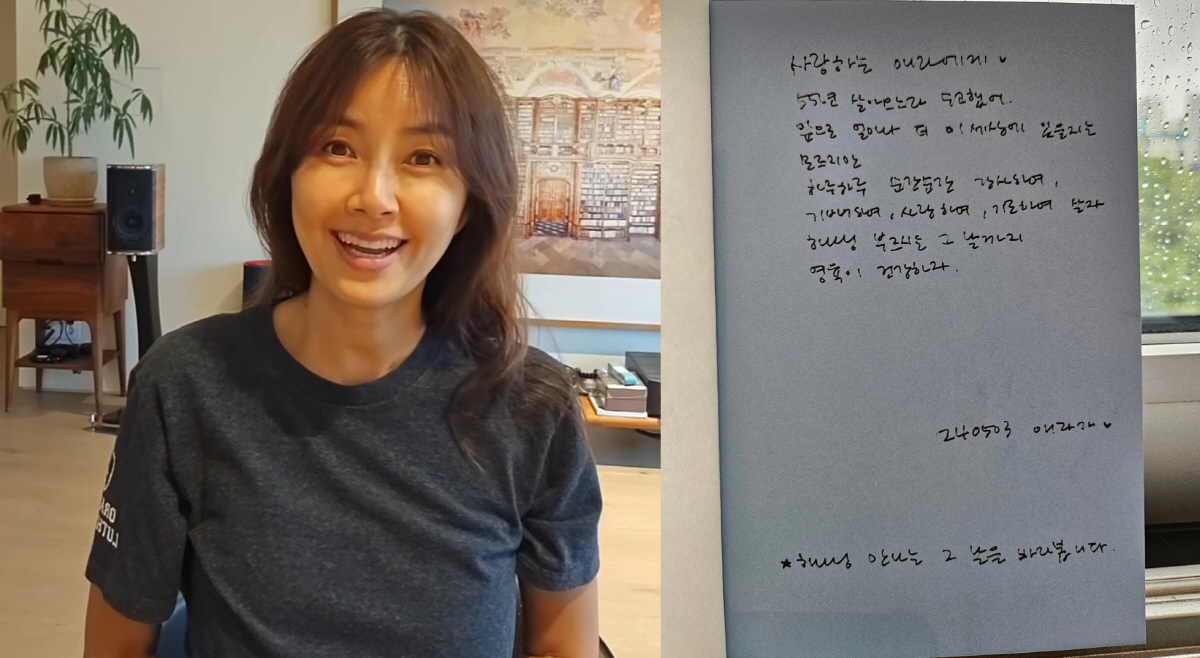 사랑하는 애라에게 ♥
55년 살아오느라 수고했어.
앞으로 얼마나 더 이 세상에 있을지는
모르지만
하루하루 순간순간 감사하며,
기뻐하며, 사랑하며, 기도하며 살자
하나님 부르시는 그 날까지
영육이 건강하자.
240503 애라가 ♥
★하나님 만나는 그 날을 바라봅니다.